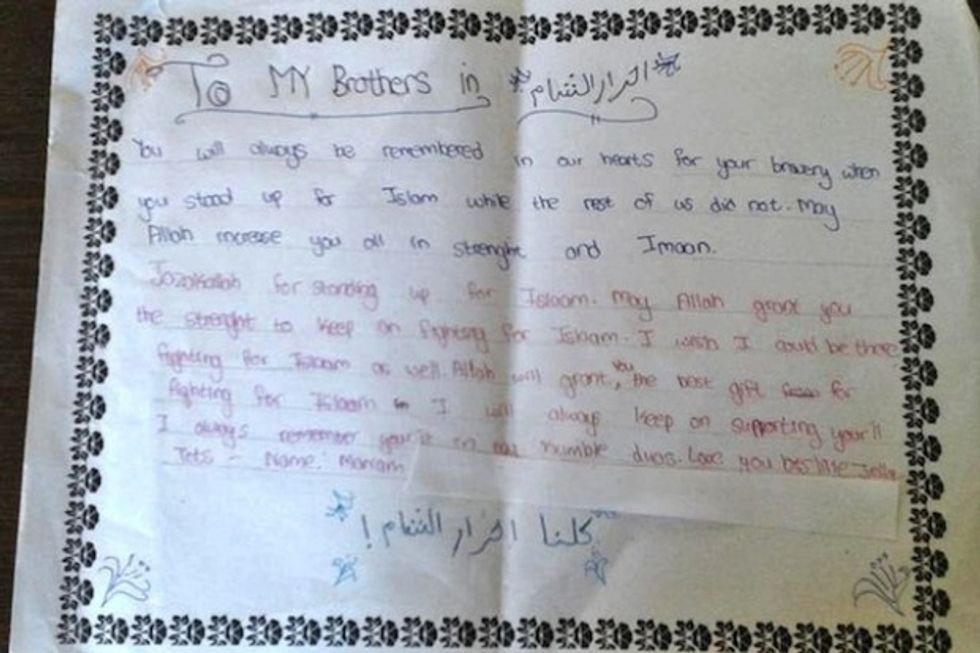 To MY Brothers in احرار الشام
You will always be remembered in our hearts for your bravery when
you stood up for Islam while the rest of us did not. May
Allah increase you all in strenght and Imaan.
Jazakallah for standing up for Islaam. May Allah grant you
the strenght to keep on fighting for Islaam. I wish I could be there
fighting for Islaam as well. Allah will grant you the best gift for
fighting for Islaam I will always keep on supporting your'll
I always remember your'll in my humble duas. Love you
Tets - Name: Mariam
كلنا احرار الشام!